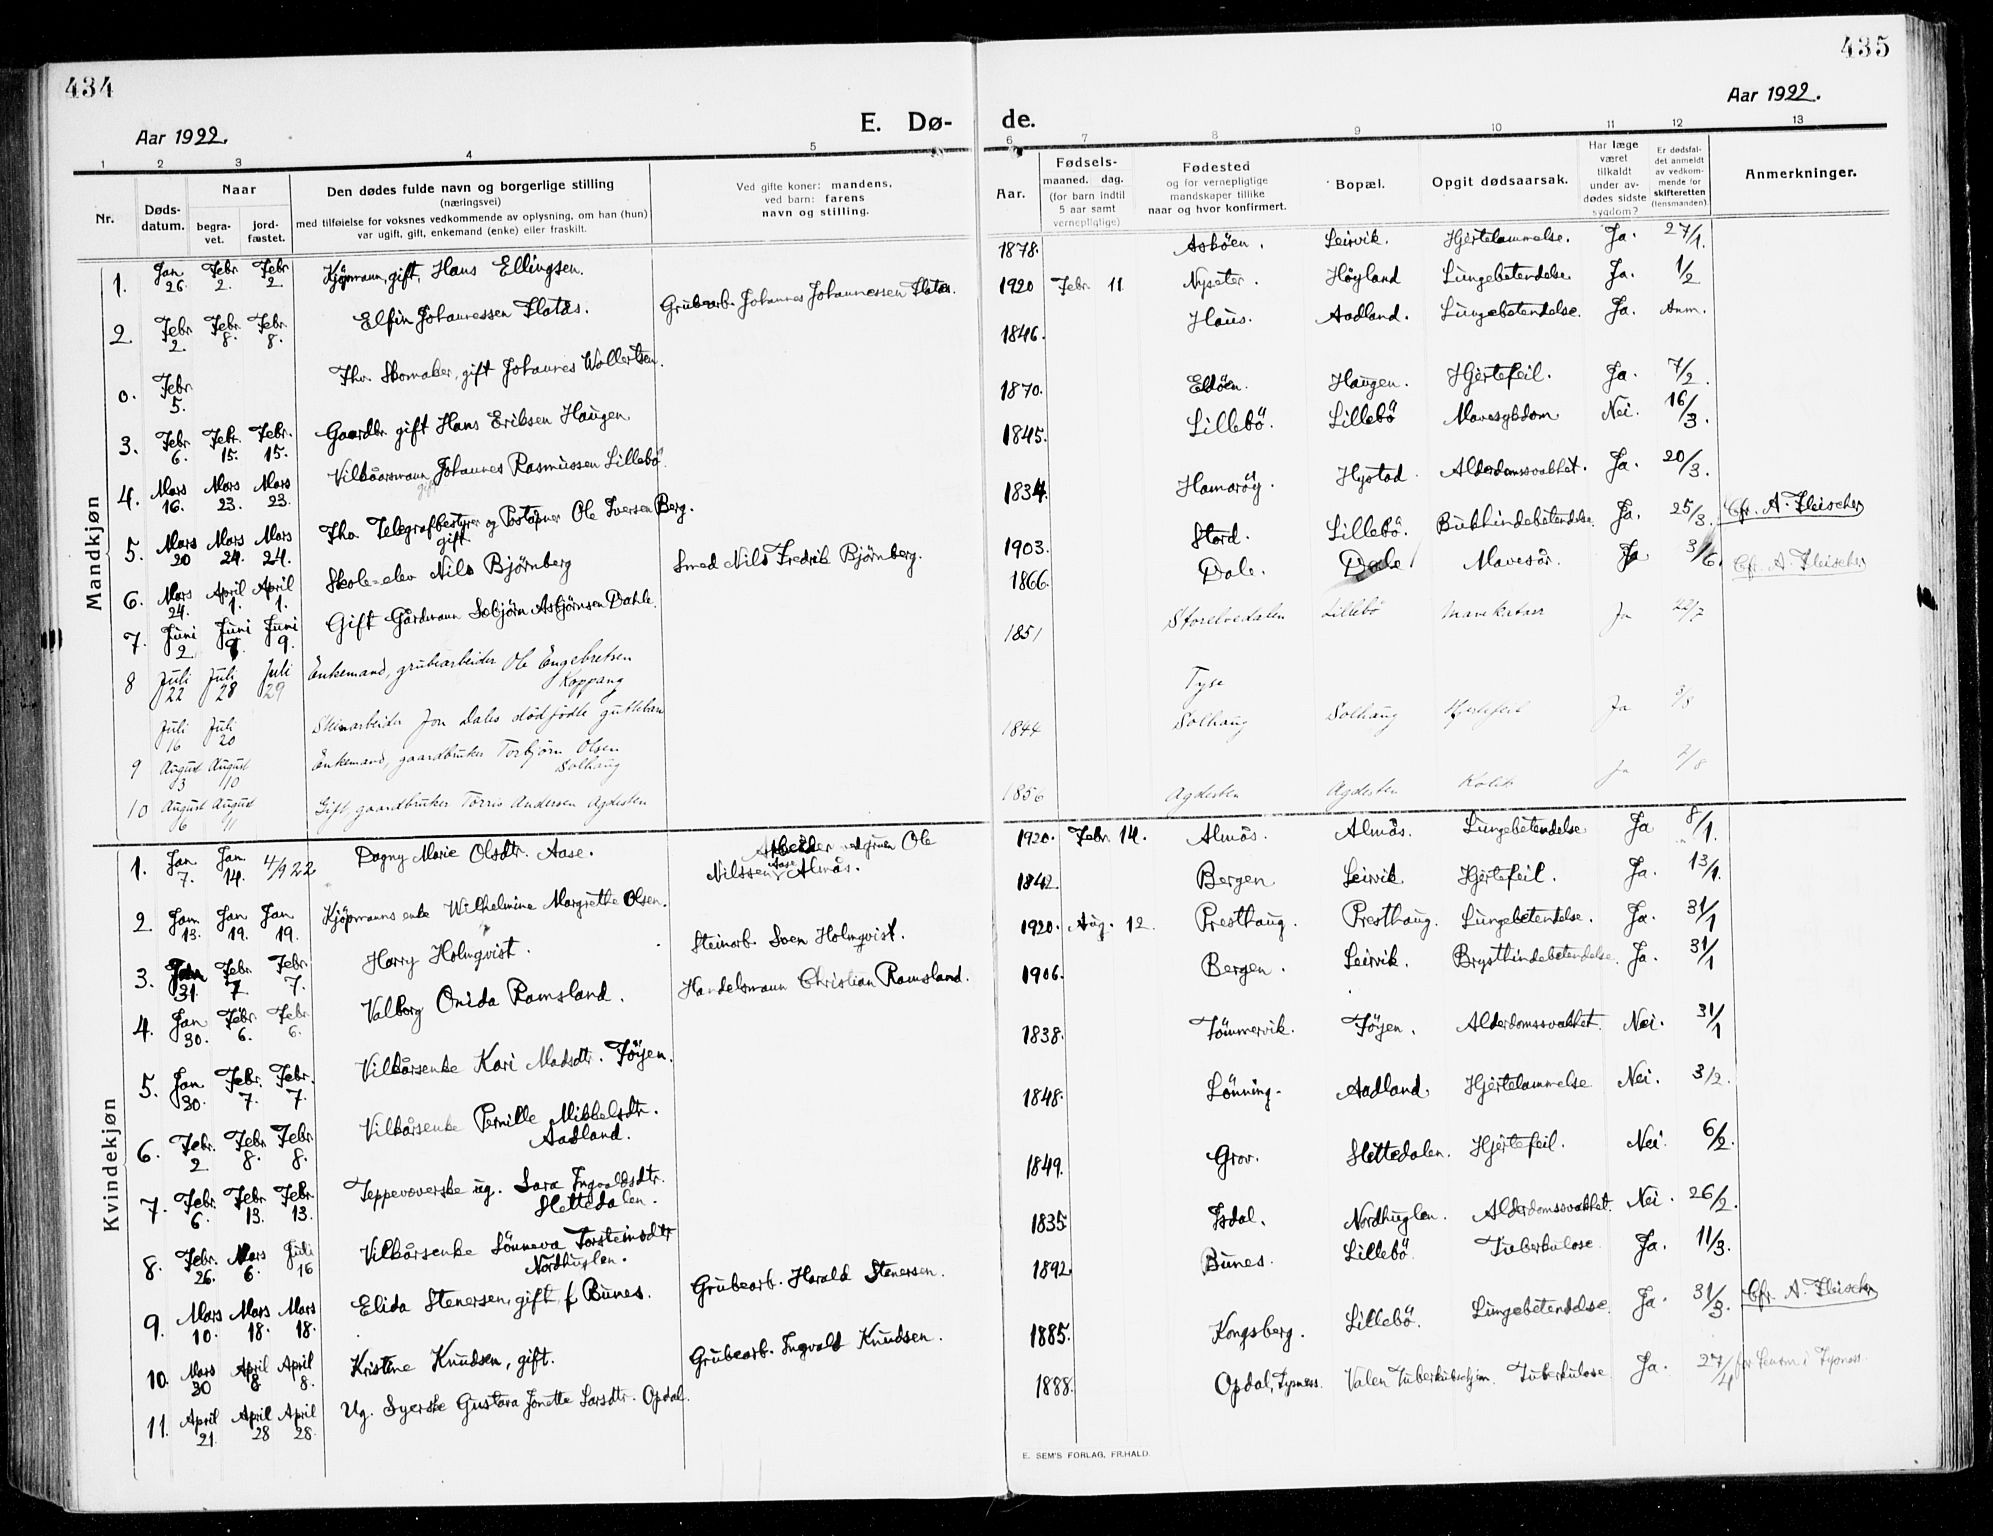 434
435
Aar 1922.
E. Dø-
de.
Aar 1922.
1 2 3 4 5 6 7 8 9 10 11 12 13
Nr.
Døds-
datum.
Naar
begra-
vet.
jord-
fæstet.
Den dødes fulde navn og borgerlige stilling
(næringsvei)
med tilføielse for voksnes vedkommende av oplysning, om han (hun)
var ugift, gift, enkemand (enke) eller fraskilt.
Ved gifte koner: mandens,
ved barn: farens
navn og stilling.
Aar.
Fødsels-
maaned. dag.
(for barn indtil
5 aar samt
vernepligtige)
Fødested
og for vernepligtige
mandskaper tillike
naar og hvor konfirmert.
Bopæl.
Opgit dødsaarsak.
Har læge
været
tilkaldt
under av-
dødes sidste
sygdom?
Er dødsfal-
det anmeldt
av vedkom-
mende for
skifteretten
(lensmanden).
Anmerkninger.
Mandkjøn
1. Jan. 26. Febr. 2. Febr. 2. Kjøpmann, gift, Hans Ellingsen. 1878. Asköen. Leirvik. Hjertelammelse. Ja. 27/1.
2. Febr. 2. Febr. 8. Febr. 8. Elfin Johannessen Flatås. Grubearb. Johannes Johannessen Flatås. 1920 Febr. 11 Nyseter. Høyland Lungebetendelse Ja. 1/2
0. Febr. 5. Fhv. Skomaker, gift Johannes Wollertsen. 1846. Haus. Aadland. Lungebetendelse. Ja. Anm.
3. Febr. 6. Febr. 15. Febr. 15. Gaardbr. gift Hans Eriksen Haugen 1870. Eldöen. Haugen. Hjertefeil. Ja. 7/2.
4. Mars 16. Mars 23. Mars 23. Vilkåarsmann gift Johannes Rasmussen Lillebö. 1845. Lillebö. Lillebö Mavesykdom Nei. 16/3.
5. Mars 20 Mars 24. Mars 24. Fhv. Telegrafbestyrer og Poståpner gift Ole Iversen Berg. 1834. Hamaröy. Hystad. Alderdomssvakhet. Ja. 20/3.
6. Mars 24. April 1. April 1. Skole-elev Nils Bjørnberg Smed Nils Fredrik Bjørnberg. 1903. Stord. Lillebö. Bukhindebetendelse. Ja. 25/3. Cfr. A. Fleischer
7. Juni 2 Juni 9. Juni 9. Gift Gårdmann Sebjørn Asbjørnsen Dahle. 1866. Dale. Dale Mavesår. Ja 3/6. Cfr. A. Fleischer
8 Juli 22 Juli 28 Juli 29 Enkemand, grubearbeider Ole Engebretsen
Koppang 1851 Storelvedalen Lillebö Mavekatarr Ja 22/7
Juli 16 Juli 20 Steinarbeider Jon Dales dødfødte guttebarn Tyse
9 August 3 August 10 Enkemand, gaardbruker Torbjørn Olsen
Solhaug 1844 Solhaug Solhaug Hjertefeil Ja 3/8
10 August 6 August 11 Gift gaardbruker Torris Andersen Agdesten 1856 Agdesten Agdesten Kolik Ja 7/8
Kvindekjøn
1. Jan. 7. Jan. 14. 4/9 22 Dagny Marie Olsdtr. Aase. Arbeider ved gruen Ole
Nilssen Aase Almås. 1920. Febr. 14. Almås. Almås. Lungebetendelse Ja 8/1.
2. Jan. 13. Jan 19. Jan 19. Kjöpmanns enke Wilhelmine Margrethe Olsen. 1842. Bergen Leirvik Hjertefeil. Ja. 13/1.
3. Jan 31. Febr. 7. Febr. 7. Harry Holmqvist. Steinarb. Sven Holmqvist. 1920. Aug. 12. Presthaug. Presthaug. Lungebetendelse. Ja. 31/1
4. Jan 30. Febr. 6. Febr. 6. Valborg Onida Ramsland. Handelsmann Christian Ramsland. 1906. Bergen. Leirvik. Brysthindebetendelse. Ja. 31/1
5. Jan 30. Febr. 7. Febr. 7. Vilkårsenke Kari Madsdtr. Föyen. 1838. Tömmervik. Föyen. Alderdomssvakhet. Nei. 31/1
6. Febr. 2 Febr. 8. Febr. 8. Vilkårsenke Pernille Mikkelsdtr.
Aadland. 1848. Lönning. Aadland. Hjertelammelse Nei. 3/2.
7. Febr. 6. Febr. 13. Febr. 13. Teppevoverske ug. Sara Ingvaldsdtr.
Slettedalen. 1849. Grov. Slettedalen. Hjertefeil. Nei. 6/2.
8. Febr. 26. Mars 6. Juli 16 Vilkårsenke Sönneva Torsteinsdtr
Nordhuglen. 1835 Isdal. Nordhuglen. Alderdomssvakhet. Nei. 26/2.
9. Mars 10. Mars 18. Mars 18. Elida Stenersen, gift, f. Bunes. Grubearb. Harald Stenersen. 1892. Bunes. Lillebö. Tuberkulose Ja. 11/3.
10. Mars 30 April 8. April 8. Kristine Knudsen, gift. Grubearb. Ingvald Knudsen. 1885. Kongsberg. Lillebö. Lungebetendelse. Ja. 31/3. Cfr. A. Fleischer
11. April 21. April 28 April 28. Ug. Syerske Gustava Jonette Larsdtr. Opdal. 1888. Opdal, Tysness. Valen Tuberkulosehjem. Tuberkulose Ja. 27/4 for Lensm i Tysness.
E. SEM'S FORLAG, FR.HALD.